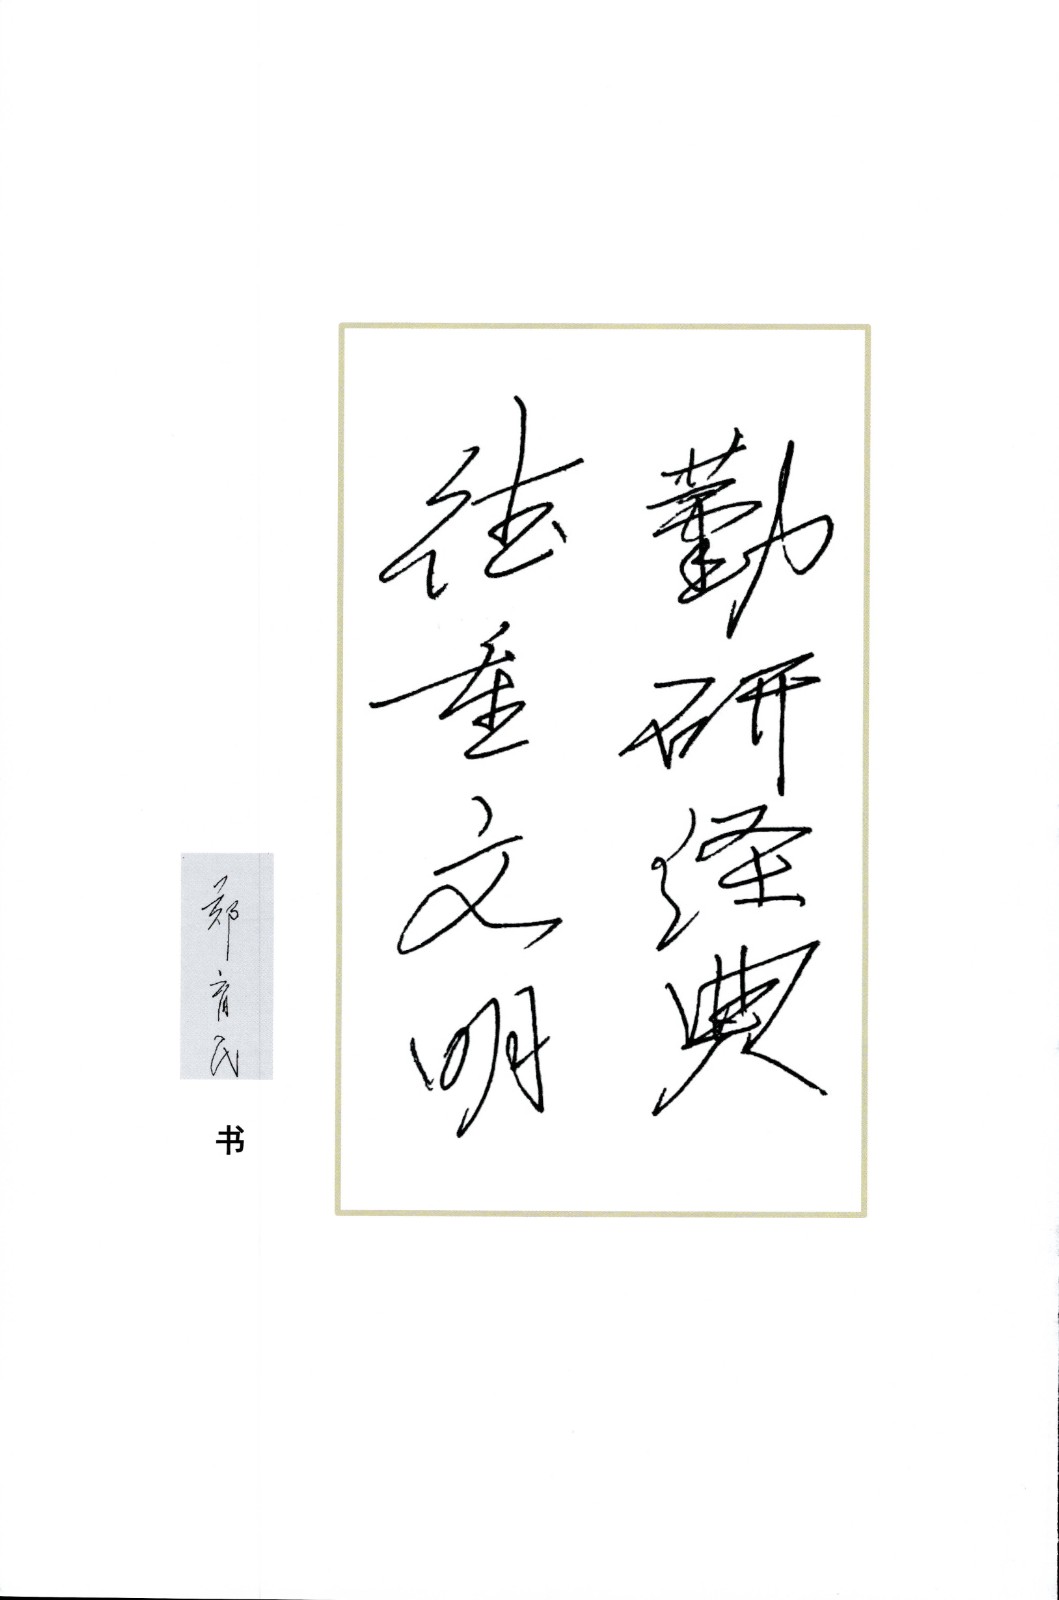 勤研经典
德文明
郑育民
书